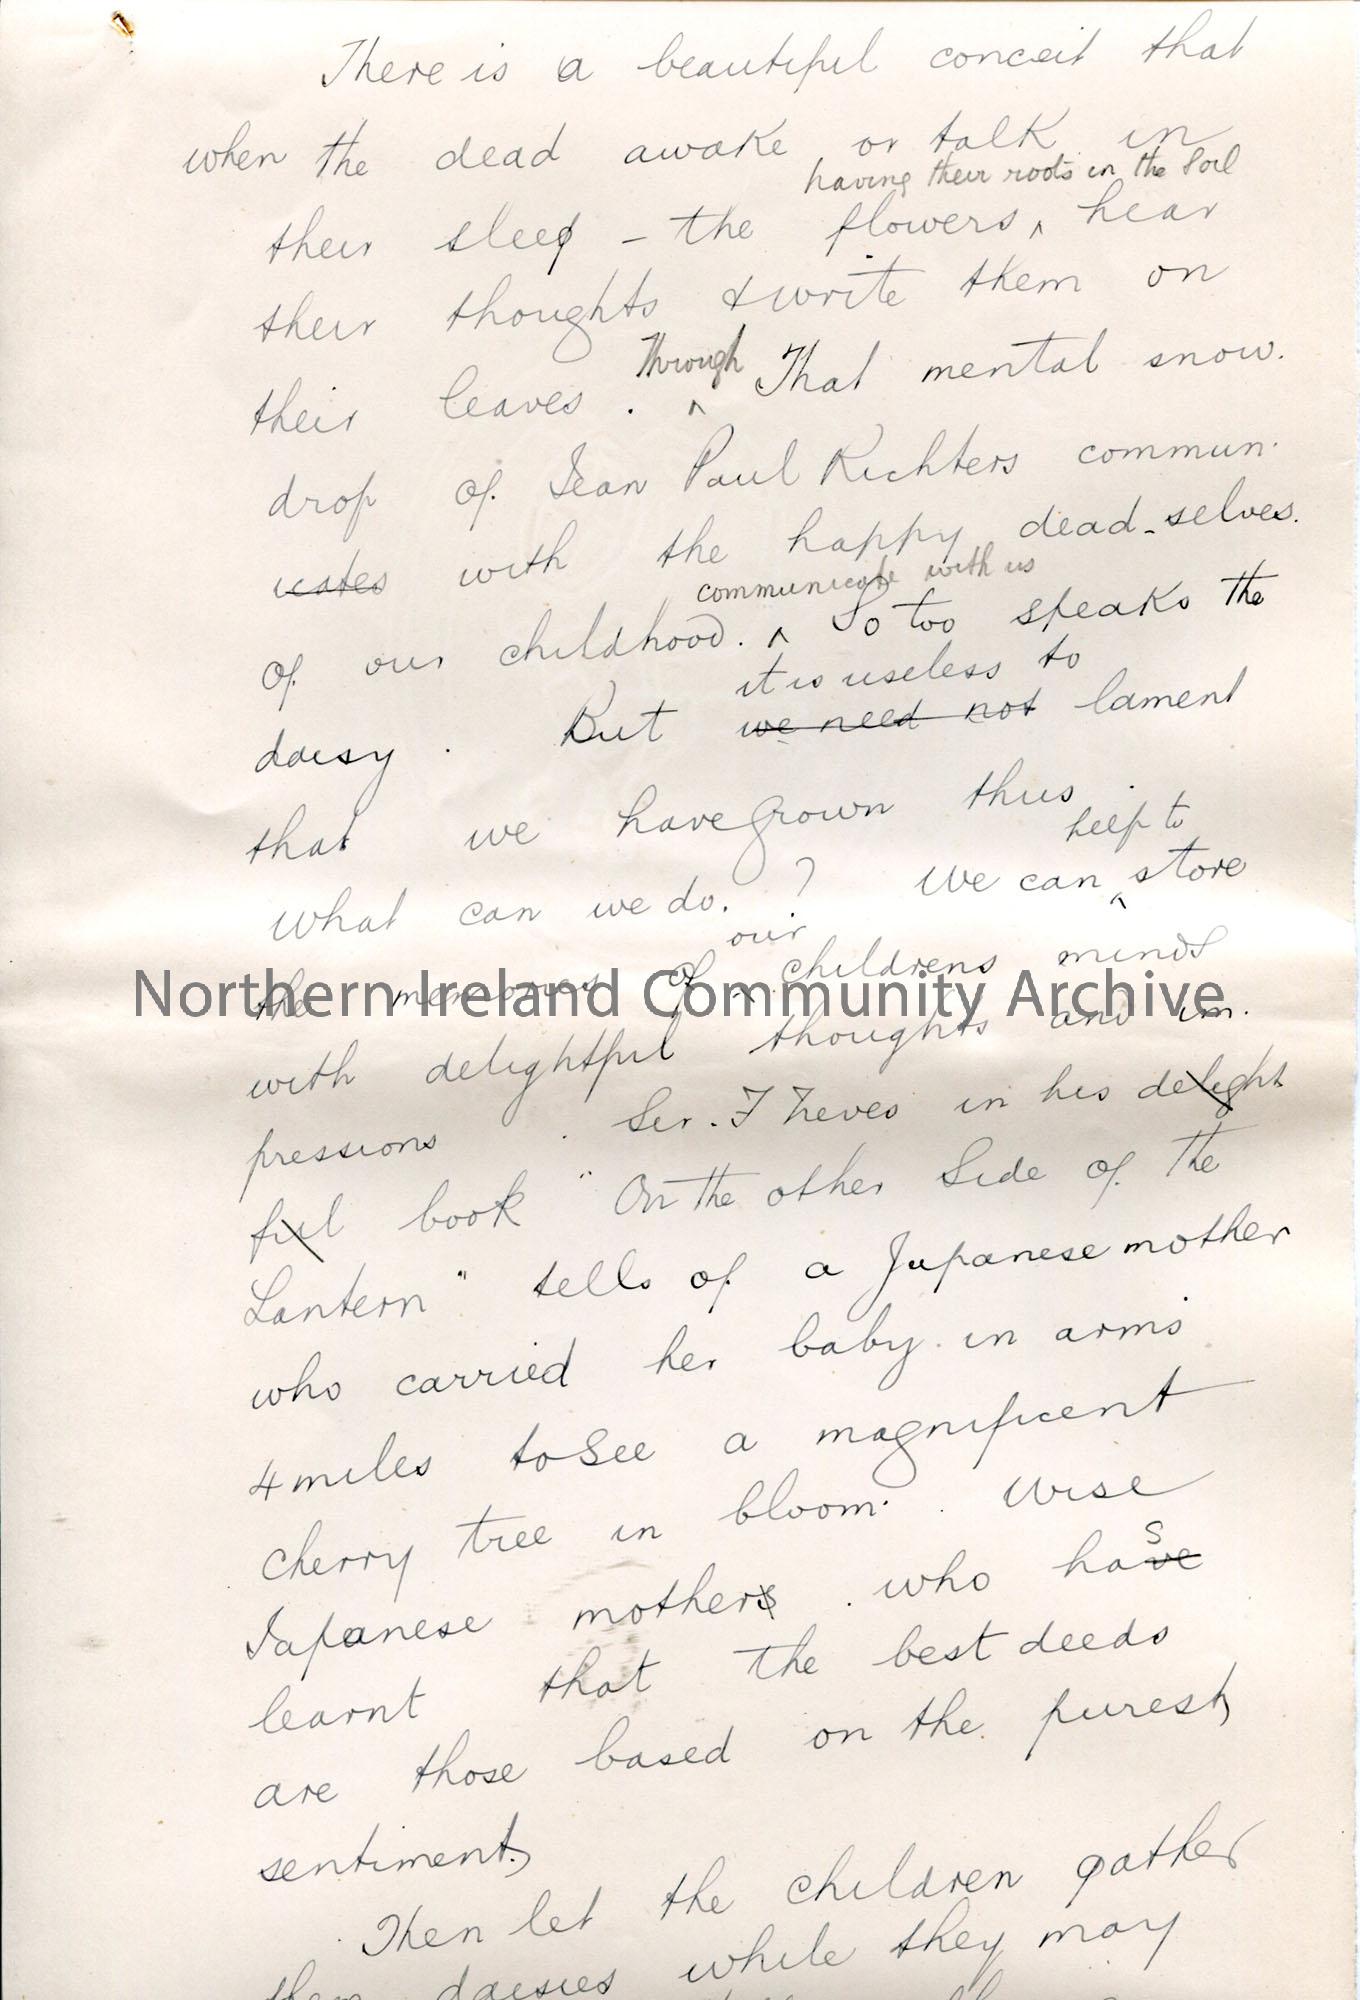 There is a beautiful conceit that
when the dead awake or talk in
having their roots in the Soil
their sleep – the flowers ‸ hear
their thoughts & write them on
Through
their leaves . ‸ That mental snow.
drop of Jean Paul Richters commun-
icates with the happy dead-selves.
communicate with us
of our childhood. ‸ So too speaks the
it is useless to
daisy . But we need not lament
that we have grown thus .
help to
What can we do. ? We can ‸ store
our
the memories of ‸ childrens minds
Northern Ireland Community Archive
with delightful thoughts and im-
pressions . Ser. F Treves in his delight
ful book "On the other Side of the
Lantern" tells of a Japanese mother
who carried her baby in arms
4 miles to See a magnificent
cherry tree in bloom . Wise
s
Japanese mothers . who have
learnt that the best deeds
are those based on the purest,
sentiment,
Then let the children gather
them daisies while they may